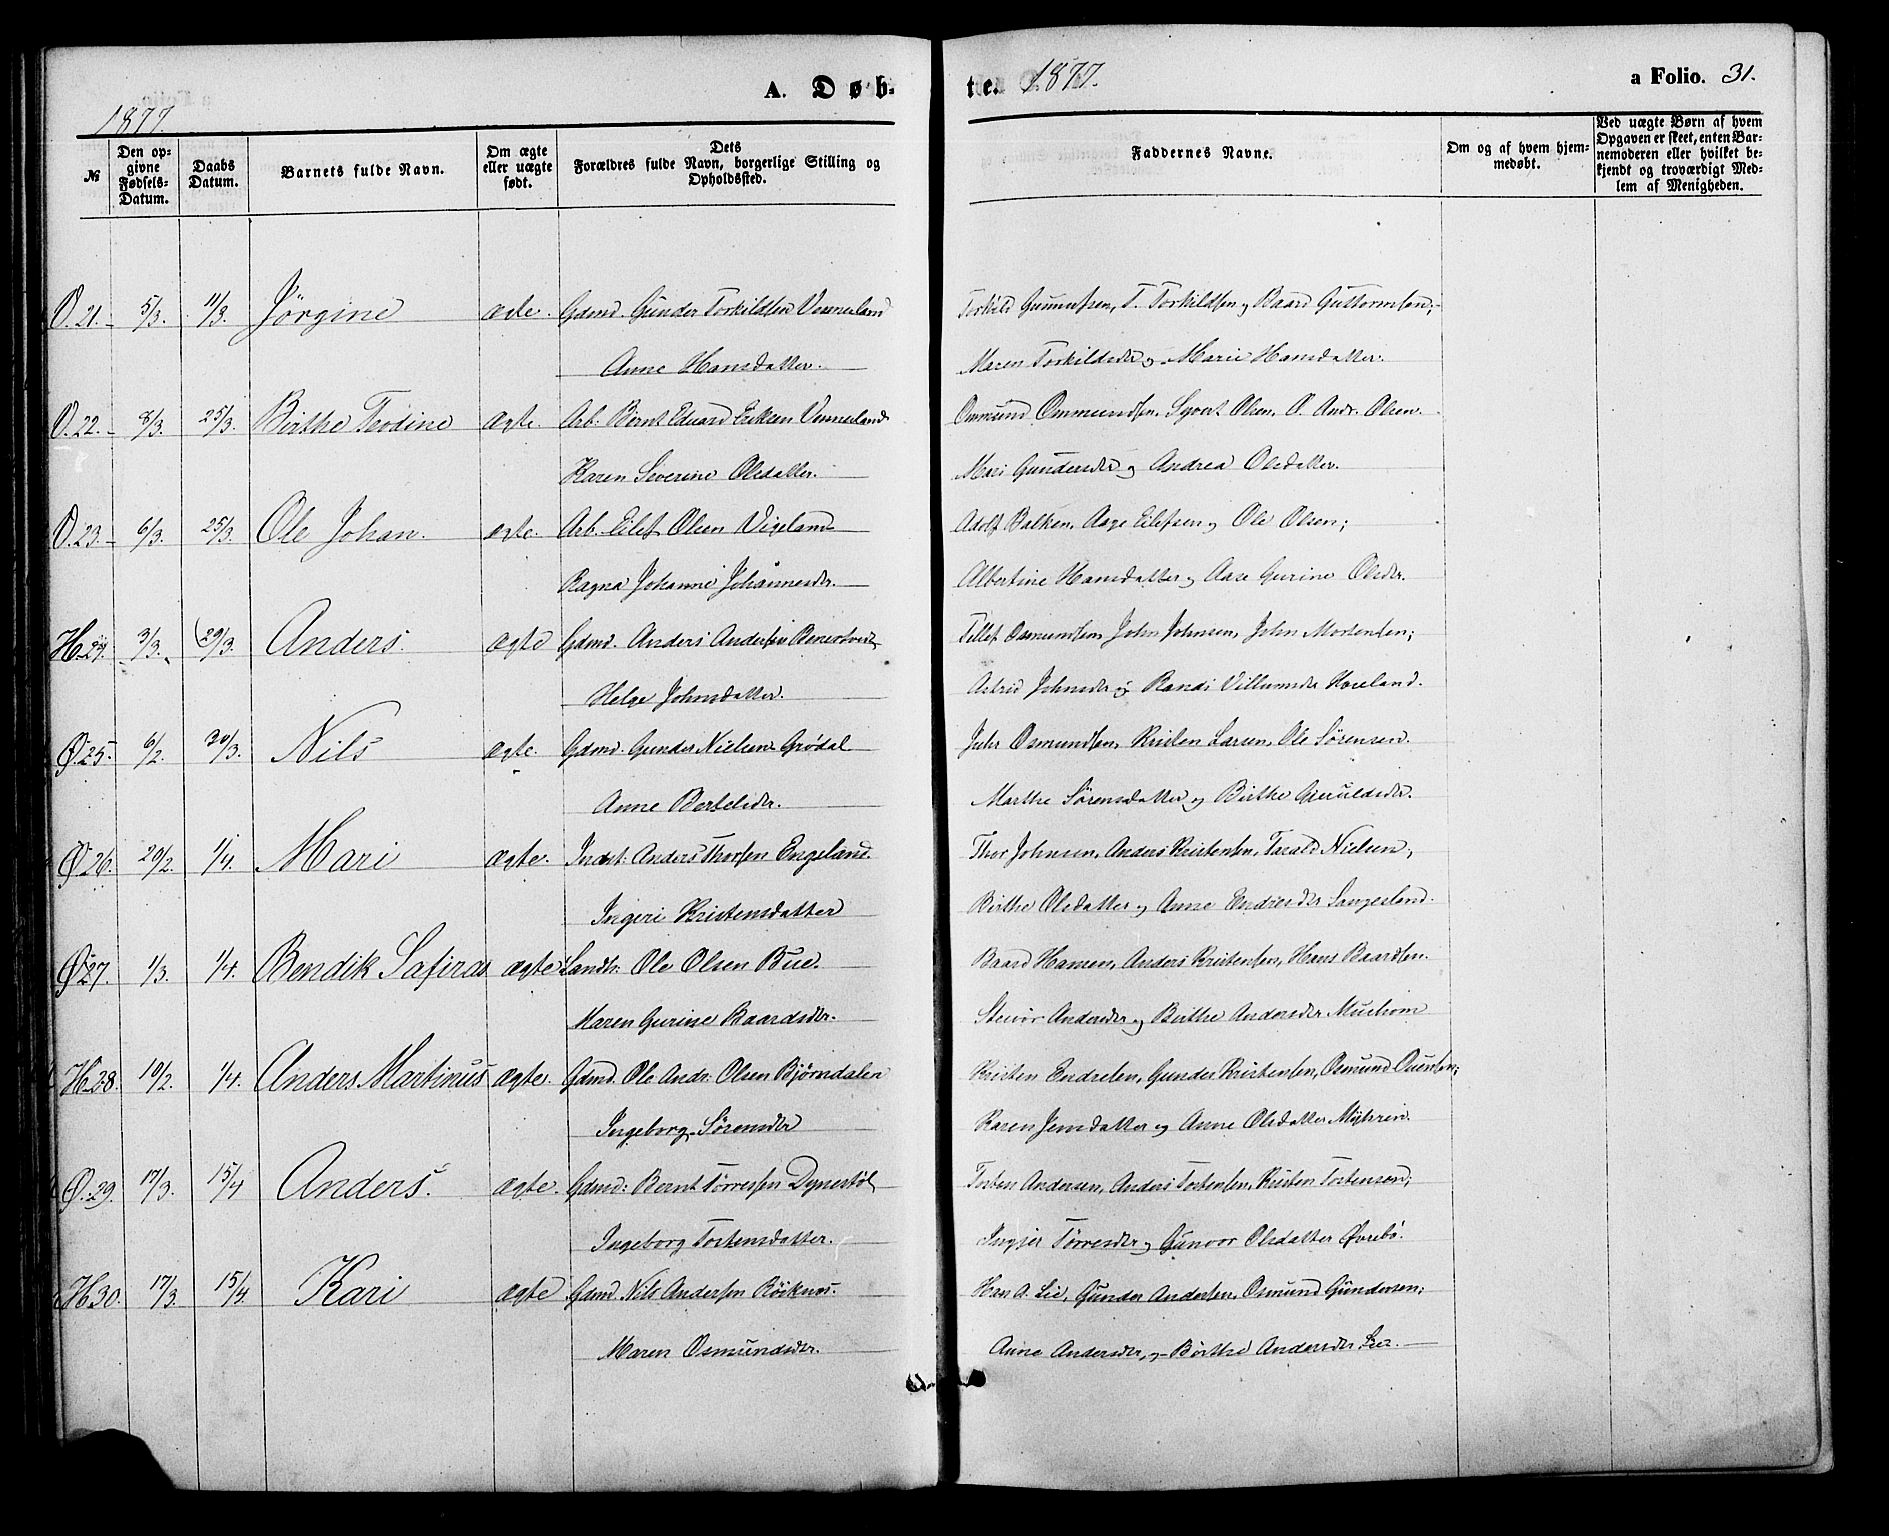 A. Døb-
1877.
№
Den op-
givne
Fødsels-
Datum.
Daabs
Datum.
Barnets fulde Navn.
Om ægte
eller uægte
født.
Dets
Forældres fulde Navn, borgerlige Stilling og
Opholdssted.
V. 21. 5/3. 11/3. Jørgine ægte. Gdmd. Gunder Torkildsen Vennesland
Anne Hansdatter.
V. 22. 8/3. 25/3. Birthe Teodine ægte. Arb. Bernt Eduard Eriksen Vennesland
Karen Severine Olsdatter.
V. 23. 6/3. 25/3. Ole Johan. ægte. Arb. Eilef Olsen Vigeland
Ragna Johanne Johannesdr.
H. 24. 3/3. 29/3. Anders. ægte Gdmd. Anders Andersen
Helge Johnsdatter.
Ø. 25. 6/2. 30/3. Nils ægte. Gdmd. Gunder Nielsen Grødal
Anne Bertelsdr.
Ø. 26. 20/2. 1/4. Mari ægte. Indst: Anders Thorsen Engeland.
Ingeri Kristensdatter
Ø. 27. 1/3. 1/4. Bendik Safiras ægte Landh: Ole Olsen Bue.
Maren Gurine Baardsdr.
H. 28. 10/2. 1/4. Anders Martinus ægte. Gdmd. Ole Andr: Olsen Bjørndalen
Ingeborg Sørensdr
Ø. 29. 17/3. 15/4 Anders. ægte. Gdmd: Bernt Tørresen Dynestøl
Ingeborg Tostensdatter.
H. 30. 17/3. 15/4. Kari ægte. Gdmd. Nils Andersen Røiknes.
Maren Osmundsdr.
te. 1877.
a Folio. 31.
Faddernes Navne.
Om og af hvem hjem-
medøbt.
Ved uægte Børn af hvem
Opgaven er skeet, enten Bar-
nemoderen eller hvilket be-
kjendt og troværdigt Med-
lem af Menigheden.
Torkild Gunnufsen, T. Torkildsen og Baard Guttormsen;
Maren Torkildsdr og Marie Hansdatter.
Ommund Ommundsen, Syvert Olsen, O. Andr. Olsen.
Mari Gundersdr og Andrea Olsdatter.
Adolf Balken, Aage Eilefsen og Ole Olsen;
Albertine Hansdatter og Aase Gurine Olsdr.
Tellef Osmundsen, John Johnsen, John Mortensen;
Astrid Johnsdr og Randi Villumsdr Horeland.
Osmundsen, Kristen Larsen, Ole Sørensen.
Marthe Sørensdatter og Birthe
Thor Johnsen, Anders Kristensen, Tarald Nielsen,
Birthe Olsdatter og Anne Endresdr Langeland.
Baard Hansen, Anders Kristensen, Hans Baardsen.
Stenvør Andersdr og Birthe Andersdr
Kristen Endresen, Gunder Kristensen, Osmund
Karen Jensdatter og Anne Olsdatter Myhren.
Tosten Andersen, Anders Tostensen, Kristen Tostensen;
Ingjer Tørresdr og Gunvor Olsdatter Øvrebø.
Hans A. Lie, Gunder Andersen, Osmund Gundersen;
Anne Andersdr, og Birthe Andersdr Lie.